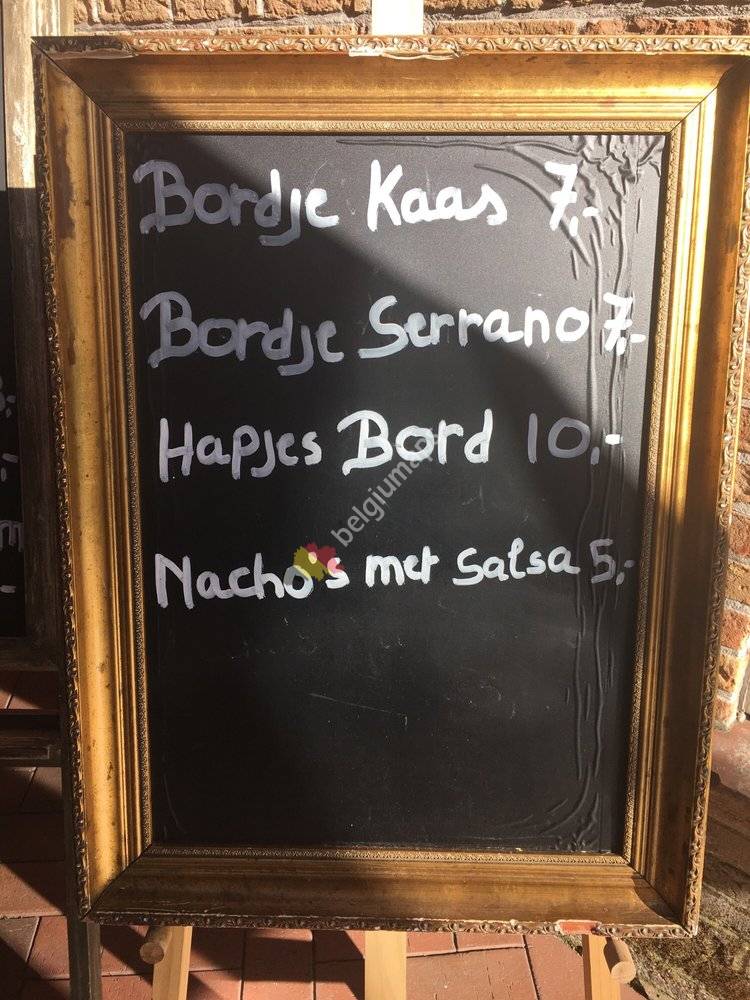 Bordje Kaas 7,-
Bordje Serrano 7,-
Hapjes Bord 10,-
Nacho's met Salsa 5,-